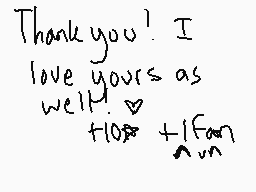 Thank you! I
love yours as
well! ♡
+10☆ +1Fan
^u^